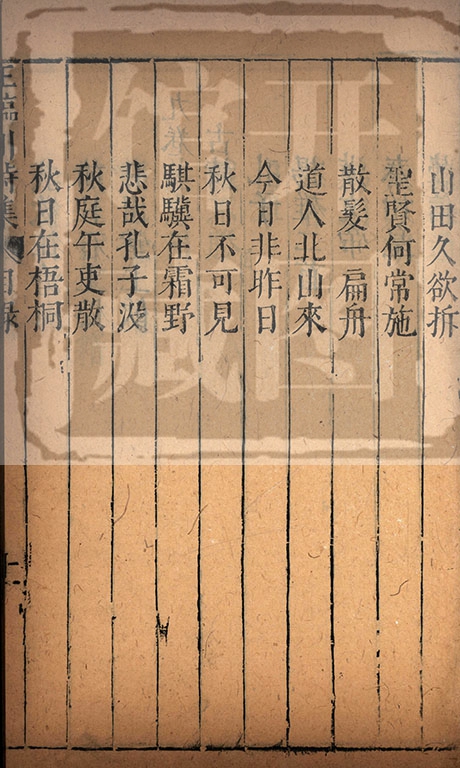 山田久欲拆
聖賢何常施
散髮一扁舟
道人北山來
今日非昨日
秋日不可見
騏驥在霜野
悲哉孔子没
秋庭午吏散
秋日在梧桐